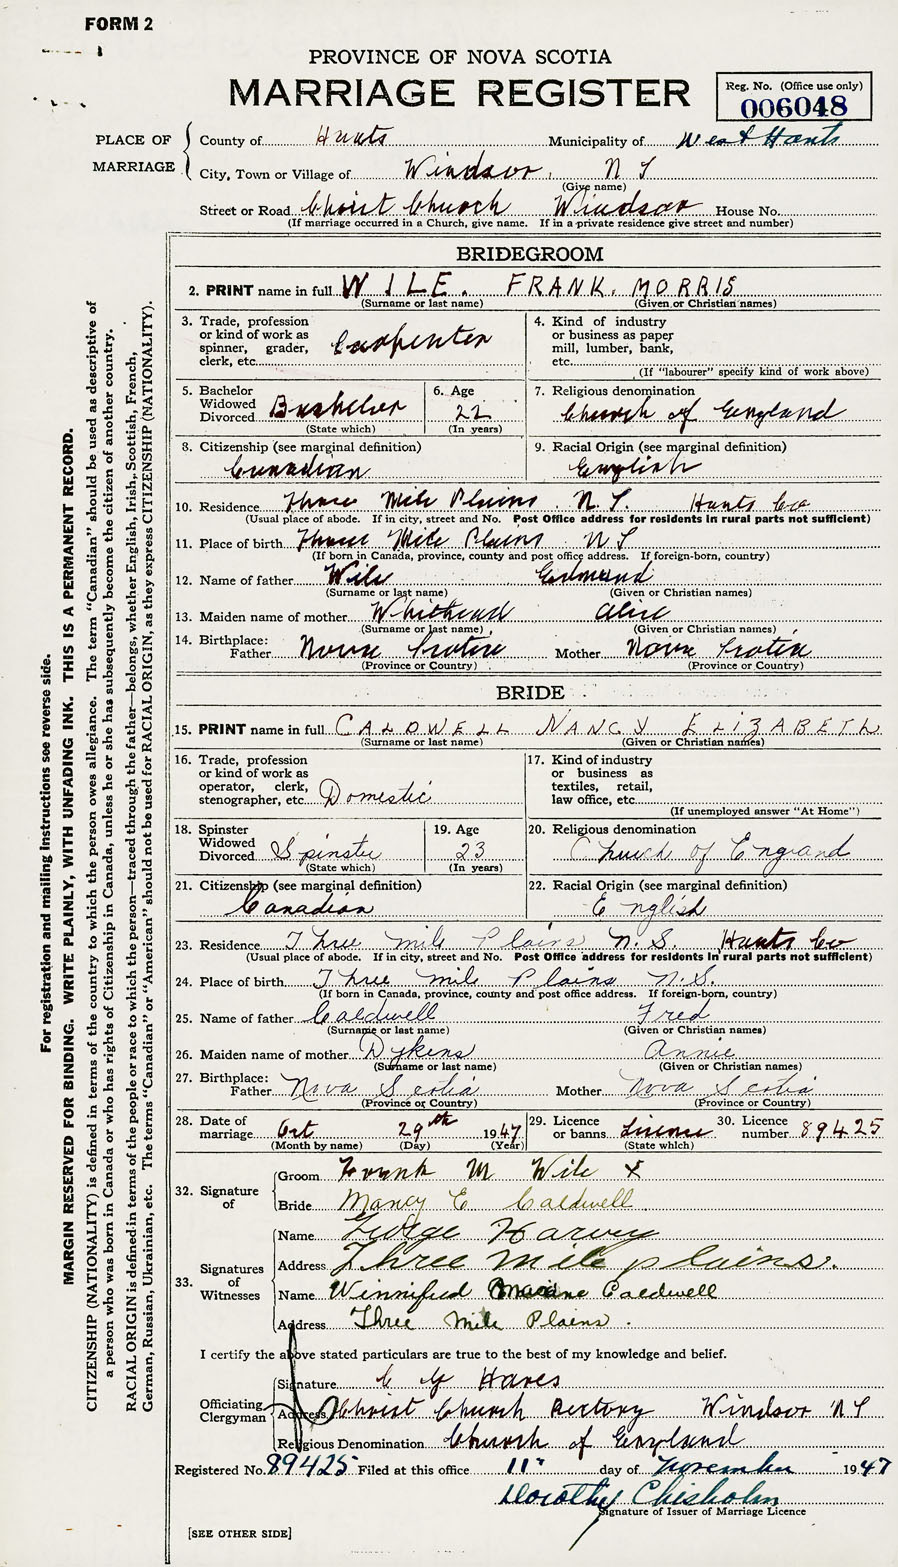 FORM 2
PROVINCE OF NOVA SCOTIA
MARRIAGE REGISTER
Reg. No. (Office use only)
006048
PLACE OF MARRIAGE
County of Hants Municipality of West Hants
City, Town or Village of Windsor, N S
(Give name)
Street or Road Christ Church Windsor House No.
(If marriage occurred in a Church, give name. If in a private residence give street and number)
BRIDEGROOM
2. PRINT name in full WILE. FRANK. MORRIS
(Surname or last name) (Given or Christian names)
3. Trade, profession or kind of work as spinner, grader, clerk, etc. Carpenter
4. Kind of industry or business as paper mill, lumber, bank, etc.
(If "labourer" specify kind of work above)
5. Bachelor Widowed Divorced Bachelor
(State which)
6. Age 22
(In years)
7. Religious denomination
Church of England
8. Citizenship (see marginal definition)
Canadian
9. Racial Origin (see marginal definition)
English
10. Residence Three Mile Plains N.S. Hants Co
(Usual place of abode. If in city, street and No. Post Office address for residents in rural parts not sufficient)
11. Place of birth Three Mile Plains N S
(If born in Canada, province, county and post office address. If foreign-born, country)
12. Name of father Wile Edmund
(Surname or last name) (Given or Christian names)
13. Maiden name of mother Whithead Alice
(Surname or last name) (Given or Christian names)
14. Birthplace: Father Nova Scotia Mother Nova Scotia
(Province or Country) (Province or Country)
BRIDE
15. PRINT name in full CALDWELL NANCY ELIZABETH
(Surname or last name) (Given or Christian names)
16. Trade, profession or kind of work as operator, clerk, stenographer, etc. Domestic
17. Kind of industry or business as textiles, retail, law office, etc.
(If unemployed answer "At Home")
18. Spinster Widowed Divorced Spinster
(State which)
19. Age 23
(In years)
20. Religious denomination
Church of England
21. Citizenship (see marginal definition)
Canadian
22. Racial Origin (see marginal definition)
English
23. Residence Three mile Plains N.S. Hants Co
(Usual place of abode. If in city, street and No. Post Office address for residents in rural parts not sufficient)
24. Place of birth Three mile Plains N.S.
(If born in Canada, province, county and post office address. If foreign-born, country)
25. Name of father Caldwell Fred
(Surname or last name) (Given or Christian names)
26. Maiden name of mother Dykens Annie
(Surname or last name) (Given or Christian names)
27. Birthplace: Father Nova Scotia Mother Nova Scotia
(Province or Country) (Province or Country)
28. Date of marriage Oct 29th 1947
(Month by name) (Day) (Year)
29. Licence or banns License
(State which)
30. Licence number 89425
32. Signature of
Groom Frank M Wile X
Bride Nancy E Caldwell
33. Signatures of Witnesses
Name George Harvey
Address Three mile plains.
Name Winnifred Caldwell
Address Three Mile Plains.
I certify the above stated particulars are true to the best of my knowledge and belief.
Officiating Clergyman
Signature
Address Christ Church Rectory Windsor N S
Religious Denomination Church of England
Registered No. 89425 Filed at this office 11" day of November 1947
Dorothy Chisholm
Signature of Issuer of Marriage Licence
[SEE OTHER SIDE]
For registration and mailing instructions see reverse side.
MARGIN RESERVED FOR BINDING. WRITE PLAINLY, WITH UNFADING INK. THIS IS A PERMANENT RECORD.
CITIZENSHIP (NATIONALITY) is defined in terms of the country to which the person owes allegiance. The term "Canadian" should be used as descriptive of
a person who was born in Canada or who has rights of Citizenship in Canada, unless he or she has subsequently become the citizen of another country.
RACIAL ORIGIN is defined in terms of the people or race to which the person—traced through the father—belongs, whether English, Irish, Scottish, French,
German, Russian, Ukrainian, etc. The terms "Canadian" or "American" should not be used for RACIAL ORIGIN, as they express CITIZENSHIP (NATIONALITY).